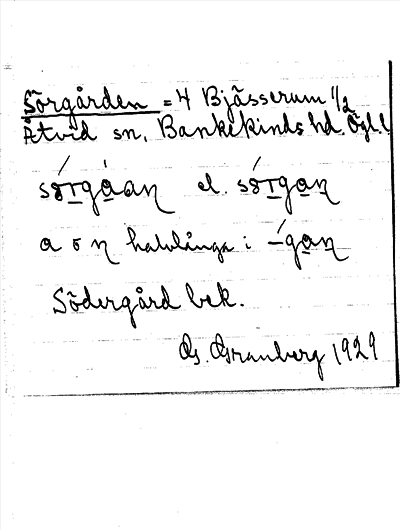 Sörgården = 4 Bjässerum 1/2
Åtvid sn. Bankekinds hd. Ögl.
el.
a o n halvlånga i
Södergård bek.
G. Granberg 1929